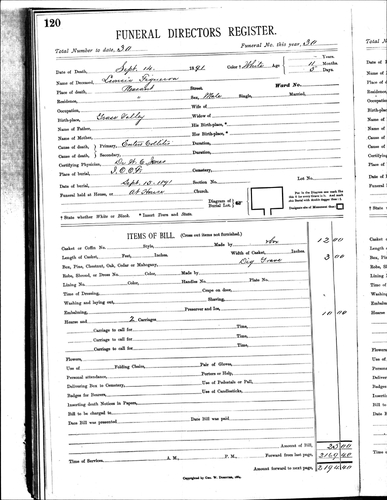 120
FUNERAL DIRECTORS REGISTER.
Total Number to date, 30 Funeral No. this year, 30
Date of Death, Sept. 14, 1891 Color † White Age Years.
Name of Deceased, Figueroa 11 Months.
Place of death, Street. 5 Days.
Residence, Ward No.
Occupation, Sex, Male Single, Married,
Birth-place, Grass Valley Wife of
Name of Father, Widow of
Name of Mother, His Birth-place, *
Cause of death, Primary, Entero Colitis Her Birth-place, *
Cause of death, Secondary, Duration,
Certifying Physician, Dr. W. C. Jones Duration,
Place of burial, I.O.O.F. Cemetery,
Date of burial, Sept. 15, 1891 Section No. Lot No.
Funeral held at House, or At House Church.
Diagram of Burial Lot.
† State whether White or Black. * Insert Town and State.
ITEMS OF BILL. (Cross out items not furnished.)
Casket or Coffin No. Style, Made by 12 00
Length of Casket, Feet, Inches. Width of Casket, Inches.
Box, Pine, Chestnut, Oak, Cedar or Mahogany, Dig Grave 3 00
Robe, Shroud, or Dress No. Color, Made by
Lining No. Color, Handles No. Plate No.
Time of Dressing, Crape on door,
Washing and laying out, Shaving,
Embalming, Preserver and Ice,
Hearse and 2 Carriages. 10 00
Carriage to call for Time,
Carriage to call for Time,
Carriage to call for Time,
Carriage to call for Time,
Flowers,
Use of Folding Chairs, Pair of Gloves,
Personal attendance, Porters or Help,
Delivering Box to Cemetery, Use of Pedestals or Pall,
Badges for Bearers, Use of Candlesticks,
Inserting death Notices in Papers,
Bill to be charged to
Date Bill was presented Date Bill was paid
Amount of Bill, 25 00
Time of Services, A. M., P. M., Forward from last page, 2169.40
Amount forward to next page, 2194.40